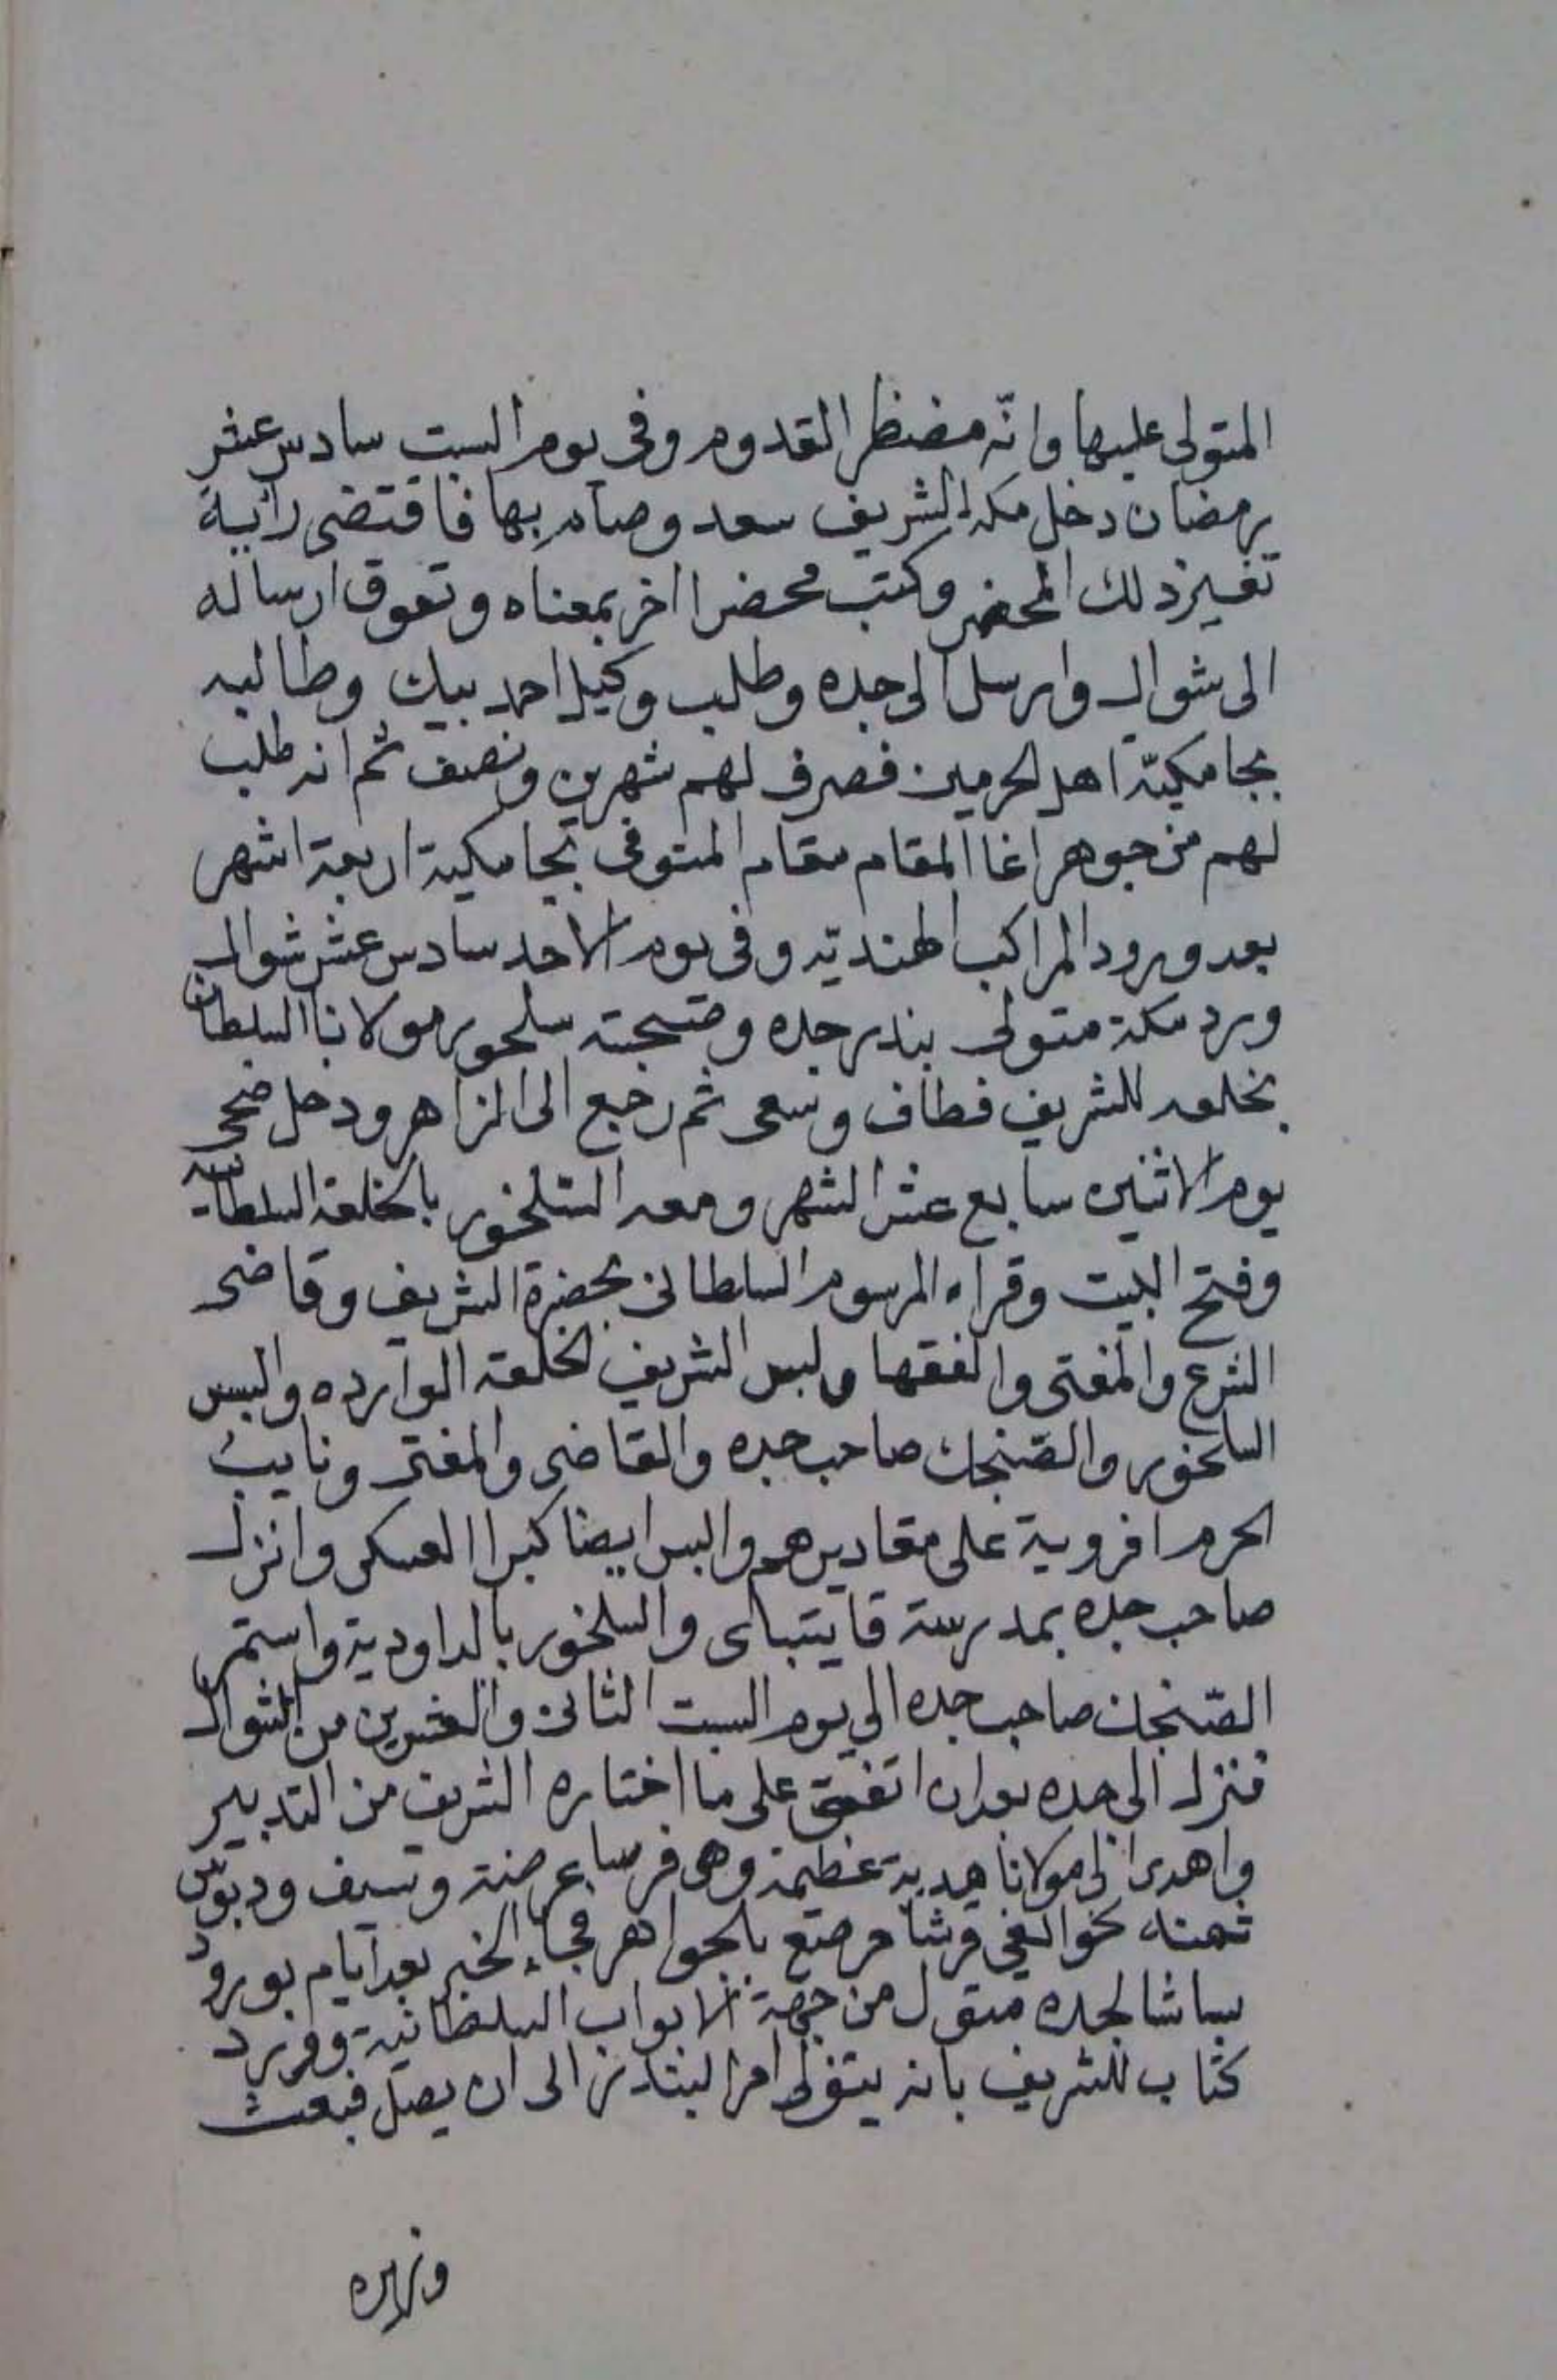 المتولى عليها وانّه مضنظر القدوم وفى يوم السبت سادس عشر
رمضان دخل مكه الشريف سعد وصام بها فاقتضى رائية
تغييز ذلك المحضر وكتب محضرا اخر بمعناه وتعوق ارساله
الى شوال وارسل الى جده وطلب وكيل احمد بيك وطالبه
بجامكيّة اهل الحرمين فصرف لهم شهرين ونصف ثم انه طلب
لهم من جوهر اغا المقام مقام المتوفى بجامكية اربعة اشهر
بعد ورود المراكب الهنديّه وفى يوم الاحد سادس عشر شوال
ورد مكة متولى بندر جده وصحبته سلحور مولانا السلطان
بخلعه للشريف فطاف وسعى ثم رجع الى الزاهر ودخل ضحى
يوم الاثنين سابع عشر الشهر ومعه السلخور بالخلعة السلطانيه
وفتح البيت وقراء المرسوم السلطانى بحضرة الشريف وقاضى
الشرع والمفتى والفقها ولبس الشريف الخلعة الوارده والبس
السلخور والصّنجك صاحب جده والقاضى والمفتى ونايب
الحرم افروية على مقاديرهم والبس ايضا كبرا العسكر وانزل
صاحب جده بمدرسة قايتباى والسلخور بالداودية واستمر
الصّنجك صاحب جده الى يوم السبت الثانى والعشرين من شوال
فنزل الى جده بعد ان اتفق على ما اختاره الشريف من التدبير
واهدى الى مولانا هدية عظيمة وهى فرسا عرضنة وسيف ودبوس
ثمنه نحو الفى قرشا مرصع بالجواهر فجاء الخبر بعد ايام بورود
باشا لجده متول من جهة الابواب السلطانية وورد
كتاب للشريف بانه يتولى امر البندر الى ان يصل فبعث
وزيره